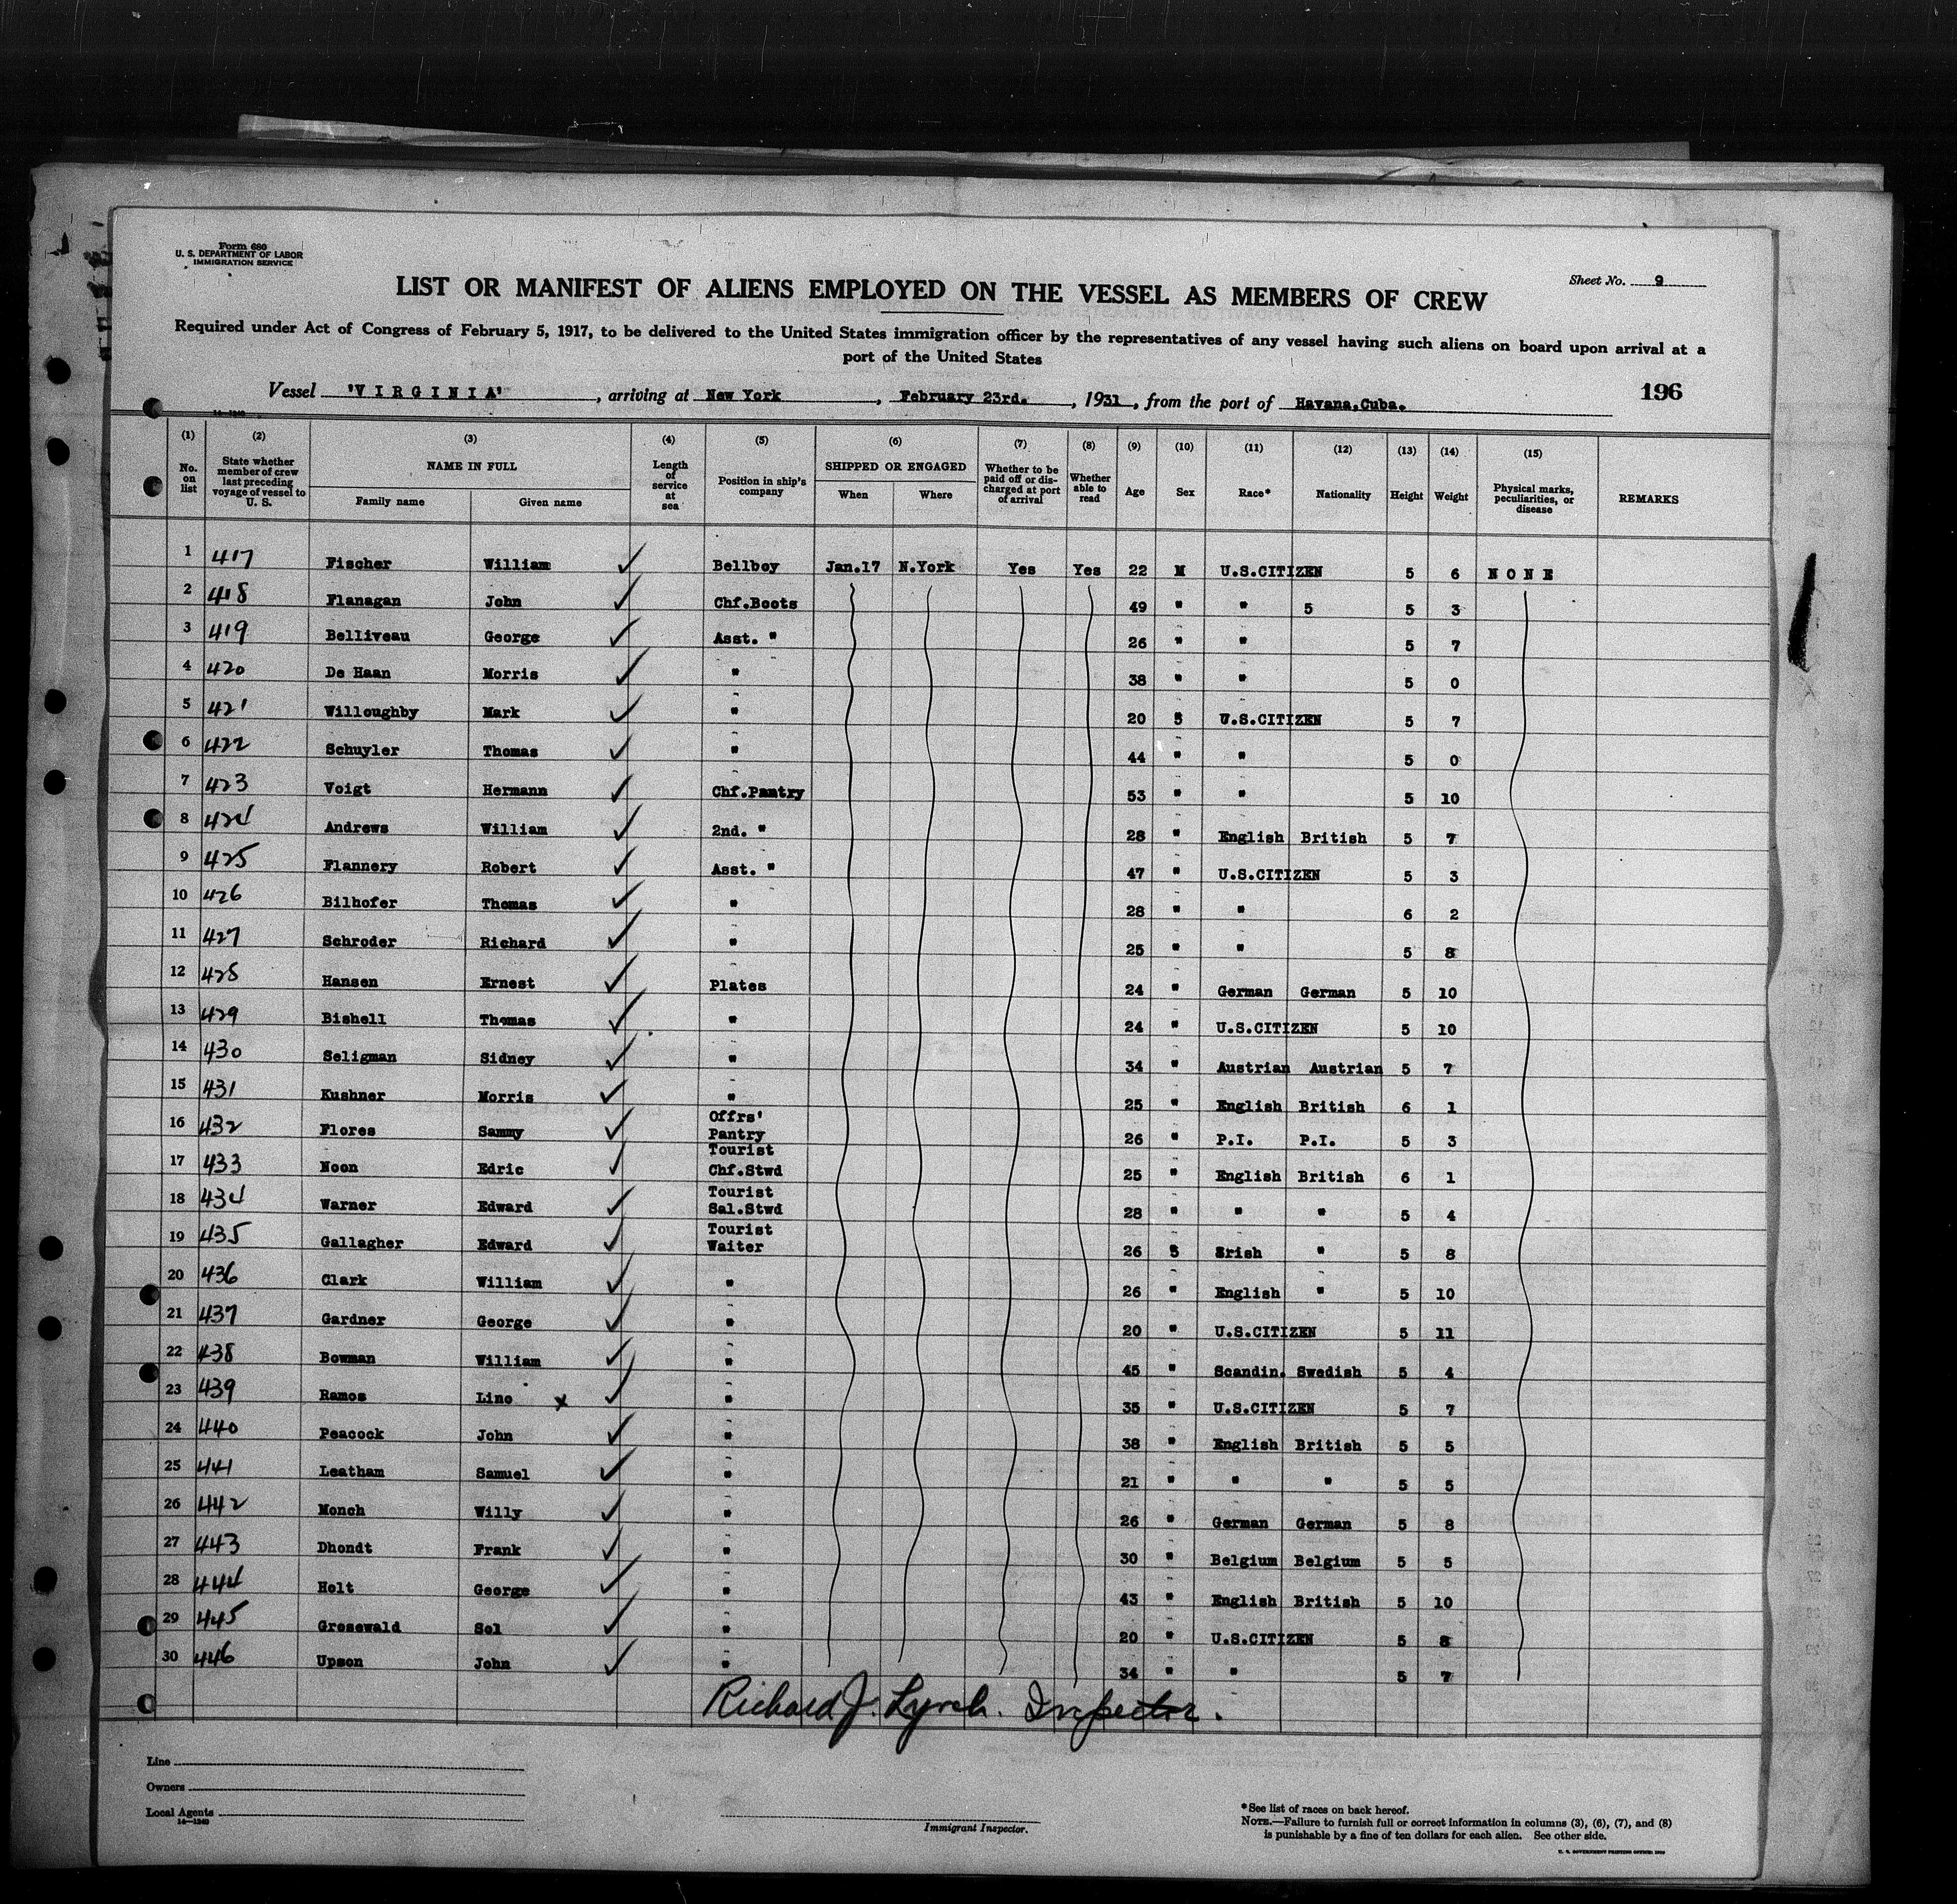 Form 680
U. S. DEPARTMENT OF LABOR
IMMIGRATION SERVICE
Sheet No. 9
LIST OR MANIFEST OF ALIENS EMPLOYED ON THE VESSEL AS MEMBERS OF CREW
Required under Act of Congress of February 5, 1917, to be delivered to the United States immigration officer by the representatives of any vessel having such aliens on board upon arrival at a
port of the United States
Vessel 'VIRGINIA' , arriving at New York , February 23rd. , 1931 , from the port of Havana,Cuba. 196
14—1240
(1) (2) (3) (4) (5) (6) (7) (8) (9) (10) (11) (12) (13) (14) (15)
No. on list State whether member of crew last preceding voyage of vessel to U. S. NAME IN FULL Family name Given name Length of service at sea Position in ship's company SHIPPED OR ENGAGED When Where Whether to be paid off or discharged at port of arrival Whether able to read Age Sex Race* Nationality Height Weight Physical marks, peculiarities, or disease REMARKS
1 417 Fischer William ✓ Bellboy Jan.17 N.York Yes Yes 22 M U.S.CITIZEN 5 6 NONE
2 418 Flanagan John ✓ Chf.Boots 49 " " 5 5 3
3 419 Belliveau George ✓ Asst. " 26 " " 5 7
4 420 De Haan Morris ✓ " 38 " " 5 0
5 421 Willoughby Mark ✓ " 20 5 U.S.CITIZEN 5 7
6 422 Schuyler Thomas ✓ " 44 " " 5 0
7 423 Voigt Hermann ✓ Chf.Pantry 53 " " 5 10
8 424 Andrews William ✓ 2nd. " 28 " English British 5 7
9 425 Flannery Robert ✓ Asst. " 47 " U.S.CITIZEN 5 3
10 426 Bilhofer Thomas ✓ " 28 " " 6 2
11 427 Schroder Richard ✓ " 25 " " 5 8
12 428 Hansen Ernest ✓ Plates 24 " German German 5 10
13 429 Bishell Thomas ✓ " 24 " U.S.CITIZEN 5 10
14 430 Seligman Sidney ✓ " 34 " Austrian Austrian 5 7
15 431 Kushner Morris ✓ " 25 " English British 6 1
16 432 Flores Sammy ✓ Offrs' Pantry 26 " P.I. P.I. 5 3
17 433 Noon Edric ✓ Tourist Chf.Stwd 25 " English British 6 1
18 434 Warner Edward ✓ Tourist Sal.Stwd 28 " " " 5 4
19 435 Gallagher Edward ✓ Tourist Waiter 26 5 Irish " 5 8
20 436 Clark William ✓ " 26 " English " 5 10
21 437 Gardner George ✓ " 20 " U.S.CITIZEN 5 11
22 438 Bowman William ✓ " 45 " Scandin. Swedish 5 4
23 439 Ramos Lino x ✓ " 35 " U.S.CITIZEN 5 7
24 440 Peacock John ✓ " 38 " English British 5 5
25 441 Leatham Samuel ✓ " 21 " " " 5 5
26 442 Monch Willy ✓ " 26 " German German 5 8
27 443 Dhondt Frank ✓ " 30 " Belgium Belgium 5 5
28 444 Holt George ✓ " 43 " English British 5 10
29 445 Grosewald Sol ✓ " 20 " U.S.CITIZEN 5 8
30 446 Upson John ✓ " 34 " " 5 7
Richard J. Lynch. Inspector.
Line
Owners
Local Agents
14—1240
Immigrant Inspector.
*See list of races on back hereof.
NOTE.—Failure to furnish full or correct information in columns (3), (6), (7), and (8)
is punishable by a fine of ten dollars for each alien. See other side.